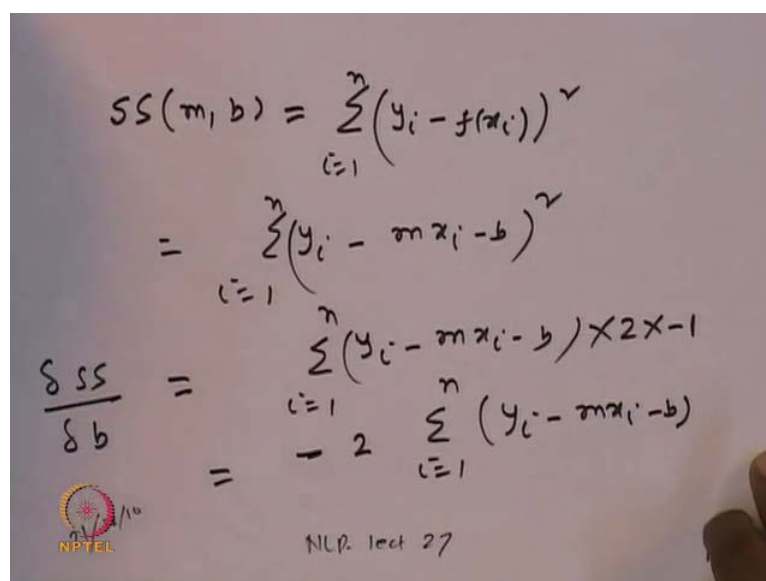 SS(m, b) = Σ_{i=1}^{n} (y_i - f(x_i))^2
= Σ_{i=1}^{n} (y_i - m x_i - b)^2
δSS/δb = Σ_{i=1}^{n} (y_i - m x_i - b) × 2 × -1
= - 2 Σ_{i=1}^{n} (y_i - m x_i - b)
NPTEL
NLP. lect 27